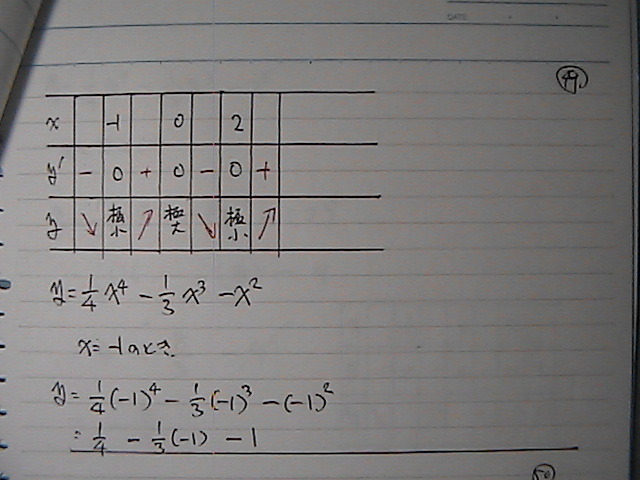 DATE
49.
x -1 0 2
y' - 0 + 0 - 0 +
y ↘ 極小 ↗ 極大 ↘ 極小 ↗
y = 1/4 x⁴ - 1/3 x³ - x²
x = -1のとき.
y = 1/4 (-1)⁴ - 1/3 (-1)³ - (-1)²
= 1/4 - 1/3 (-1) - 1
50